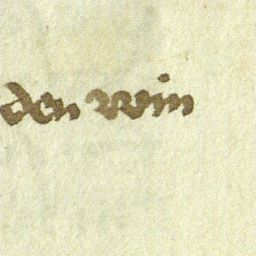 den win